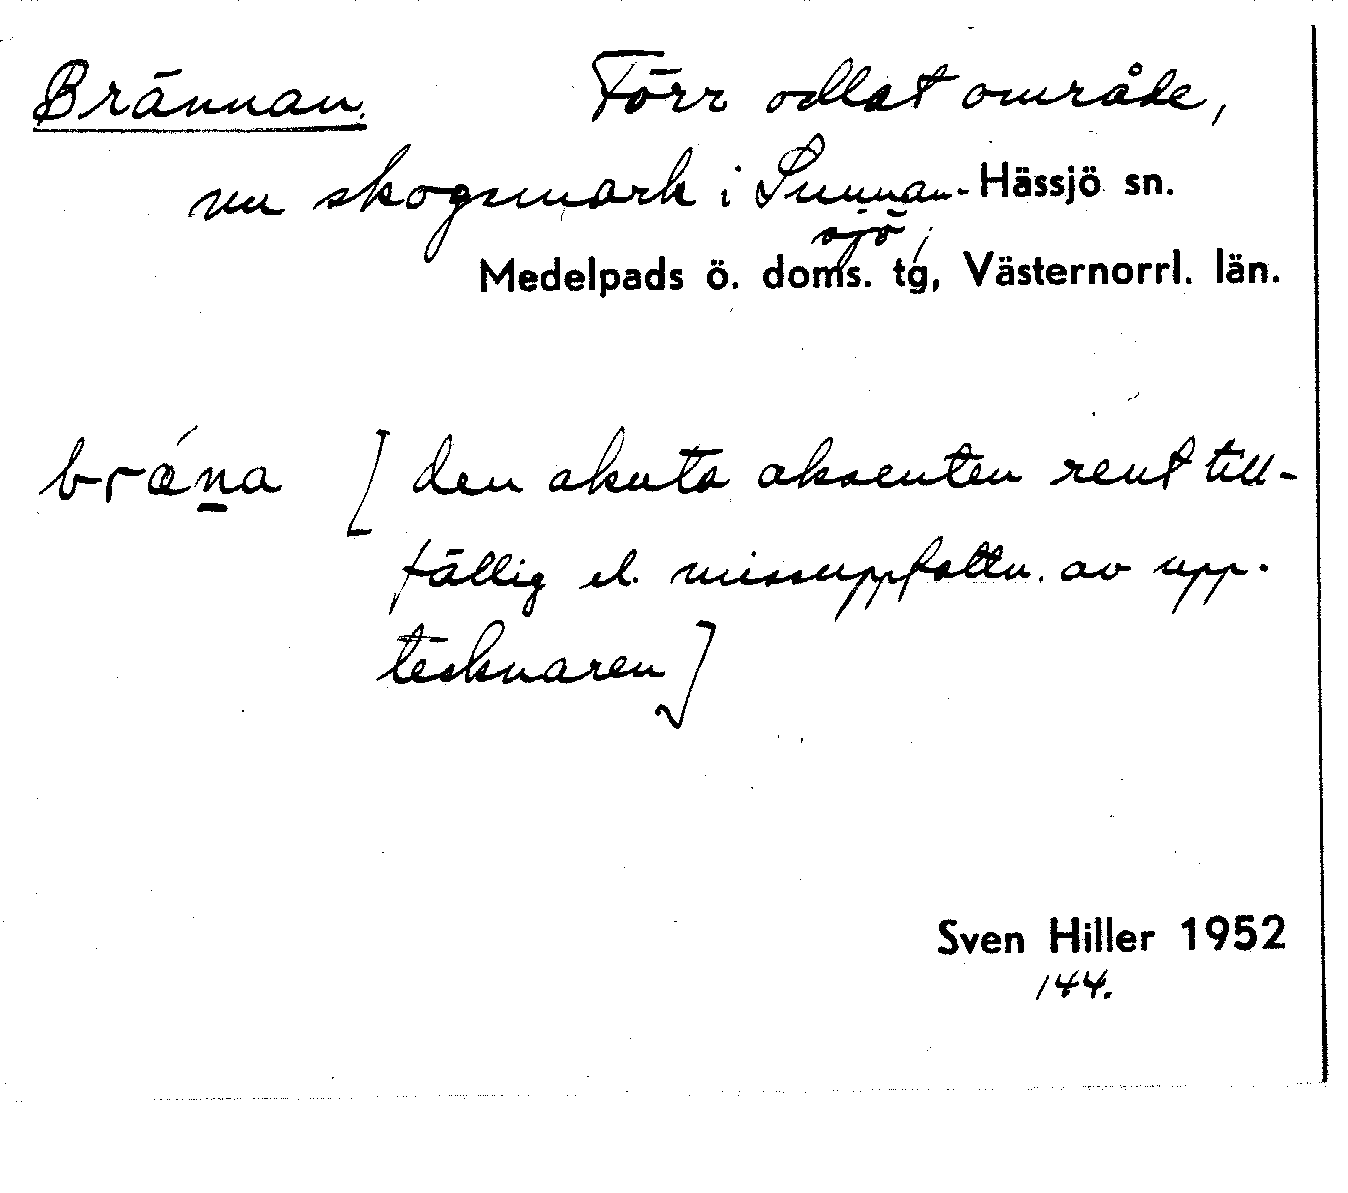 Brännan. Förr odlat område,
nu skogsmark i Sunnan- Hässjö sn.
sjö,
Medelpads ö. doms. tg, Västernorrl. län.
brǽn̲a [den akuta aksenten rent till-
fällig el. missuppfattn. av upp-
tecknaren]
Sven Hiller 1952
144.